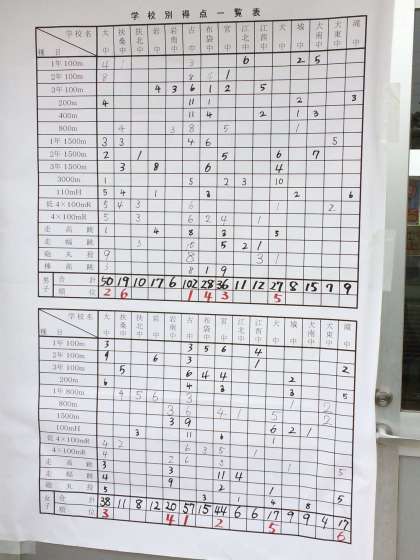 学校別得点一覧表
種目 学校 大中 扶桑中 扶北中 岩中 岩南中 古中 布袋中 宮中 江北中 江西中 犬中 城中 大南中 大東中 滝中
1年100m 4 1 3 6 2 5
2年100m 8 6 1
3年100m 4 3 6 1 2 5
200m 4 11 1 2 3
400m 11 4 2 1 3
800m 4 3 8 5 1
1年1500m 3 3 4 6 5
2年1500m 2 1 5 6 7
3年1500m 3 8 6 4
3000m 1 5 2 3 10
110mH 5 4 1 3 2 6
低4×100mR 5 4 3 6 1 2
4×100mR 5 3 6 2 4 1
走高跳 1 4 8 3 5
走幅跳 3 10 5 2 1
砲丸投 9 8 3 1
棒高跳 3 8 1 9
男子 合計 50 19 10 17 6 102 28 36 11 12 27 8 15 7 9
順位 2 6 1 4 3 5
種目 学校 大中 扶桑中 扶北中 岩中 岩南中 古中 布袋中 宮中 江北中 江西中 犬中 城中 大南中 大東中 滝中
1年100m 3 3 5 6 4
2年100m 9 6 3 4
3年100m 5 6 4 4 2
200m 6 4 3 2
1年800m 4 5 6 3 2
800m 3 6 4 1 5 2
1500m 3 9 7 2
100mH 3 6 2 1
低4×100mR 4 2
4×100mR 6 3 5 1
走高跳 2 6 3
走幅跳 3 11 4
砲丸投 4 9 2 1
女子 合計 38 11 8 12 20 57 15 44 6 6 17 9 9 4 17
順位 3 4 1 2 5 6